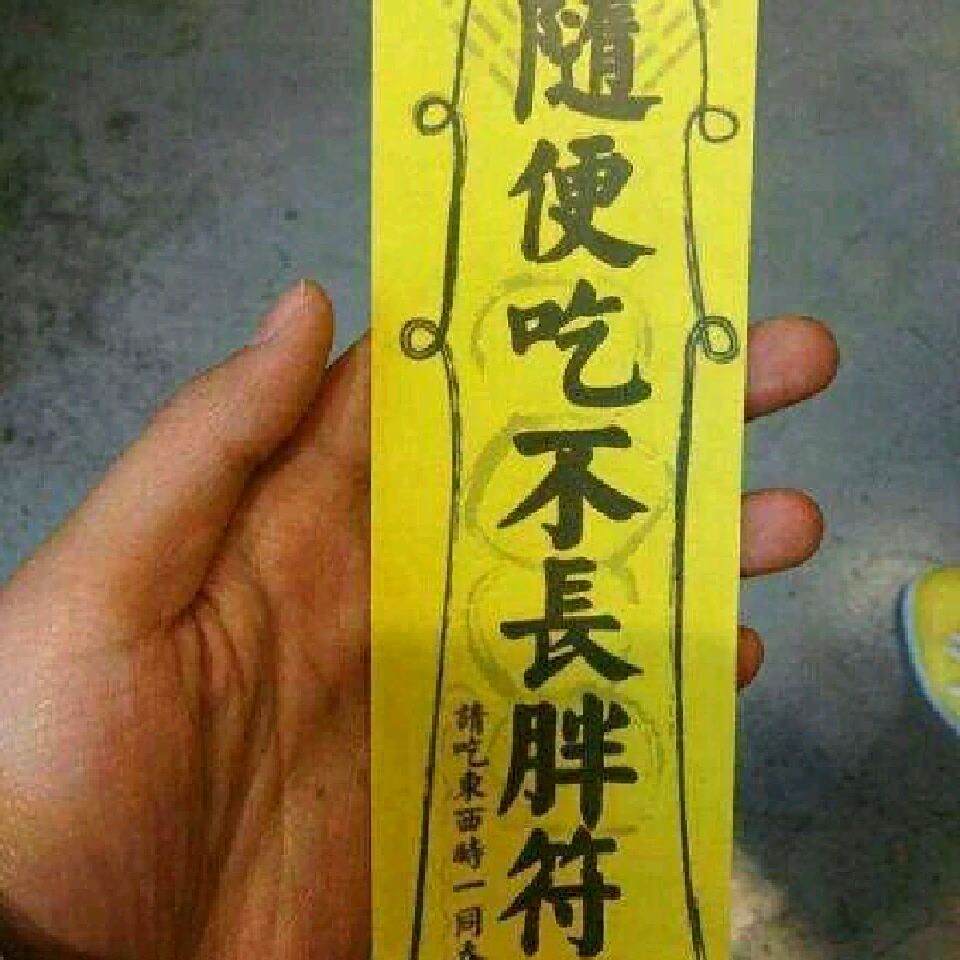 隨便吃不長胖符
請吃東西時一同